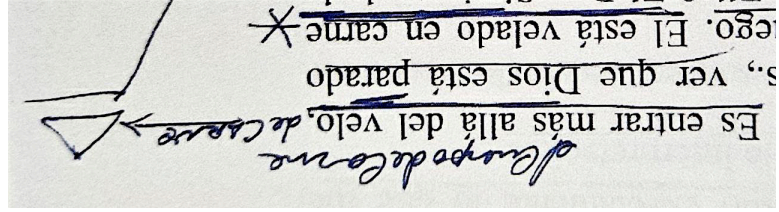 el Cuerpo de la Carne
Es entrar más allá del velo, de CARNE
s., ver que Dios está parado
iego. El está velado en carne